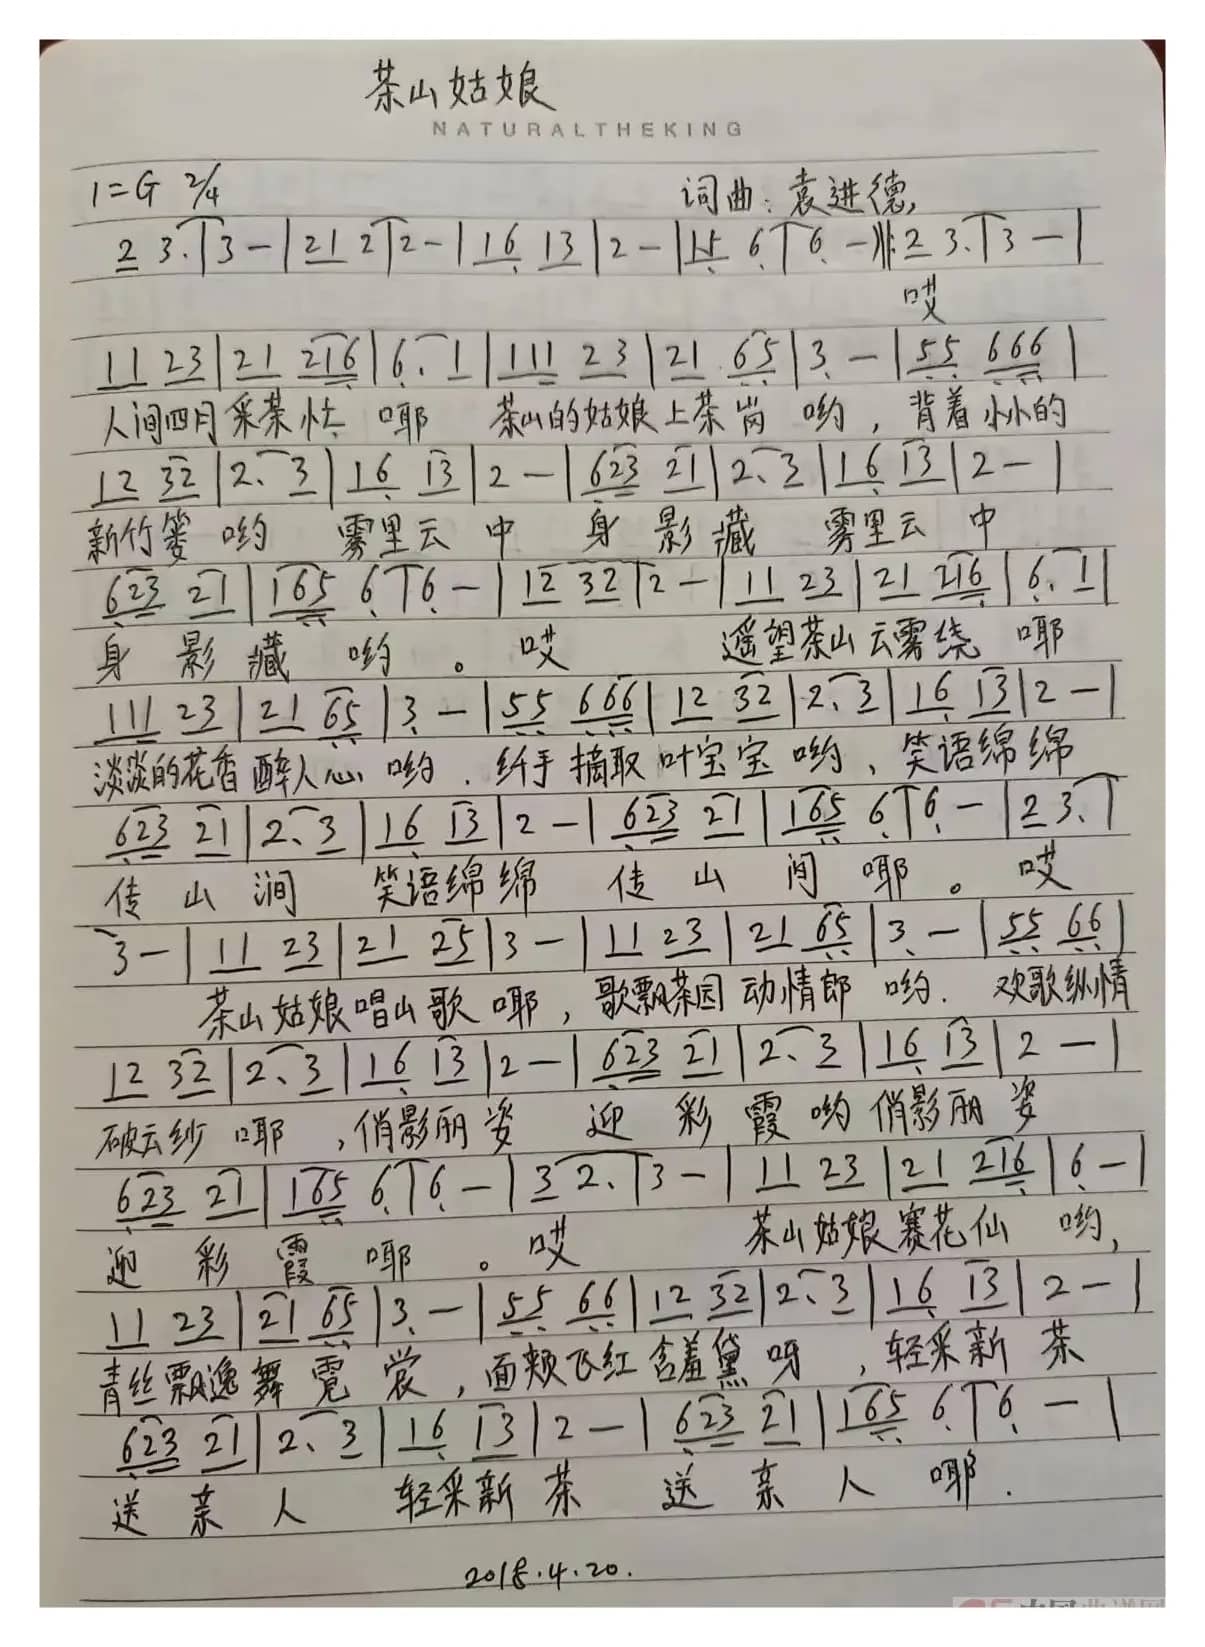 茶山姑娘
NATURALTHEKING
1=G 2/4 词曲:袁进德,
2 3.|3-|21 2|2-|16 13|2-|15 6|6-‖:2 3.|3-|
哎
11 23|21 216|6. 1|111 23|21 65|3-|55 666|
人间四月采茶忙 哪 茶山的姑娘上茶岗 哟,背着小小的
12 32|2. 3|16 13|2-|623 21|2. 3|16 13|2-|
新竹篓 哟 雾里云 中 身 影 藏 雾里云 中
623 21|165 6|6-|12 32|2-|11 23|21 216|6. 1|
身 影 藏 哟。哎 遥望茶山云雾绕 耶
111 23|21 65|3-|55 666|12 32|2. 3|16 13|2-|
淡淡的花香醉人心 哟.纤手摘取叶宝宝 哟、笑语绵 绵
623 21|2. 3|16 13|2-|623 21|165 6|6-|23.|
传 山 涧 笑语绵 绵 传 山 间 耶。哎
3-|11 23|21 25|3-|11 23|21 65|3-|55 66|
茶山姑娘唱山歌 耶,歌飘茶园动情郎 哟.欢歌纵情
12 32|2. 3|16 13|2-|623 21|2. 3|16 13|2-|
破云纱 耶,俏影丽 姿 迎 彩 霞 哟 俏影丽 姿
623 21|165 6|6-|3 2.|3-|11 23|21 216|6-|
迎 彩 霞 耶。哎 茶山姑娘赛花仙 哟,
11 23|21 65|3-|55 66|12 32|2. 3|16 13|2-|
青丝飘逸舞 霓 裳,面颊飞红含羞黛 呀,轻采新 茶
623 21|2. 3|16 13|2-|623 21|165 6|6-|
送 亲 人 轻采新 茶 送 亲 人 耶.
2018.4.20.